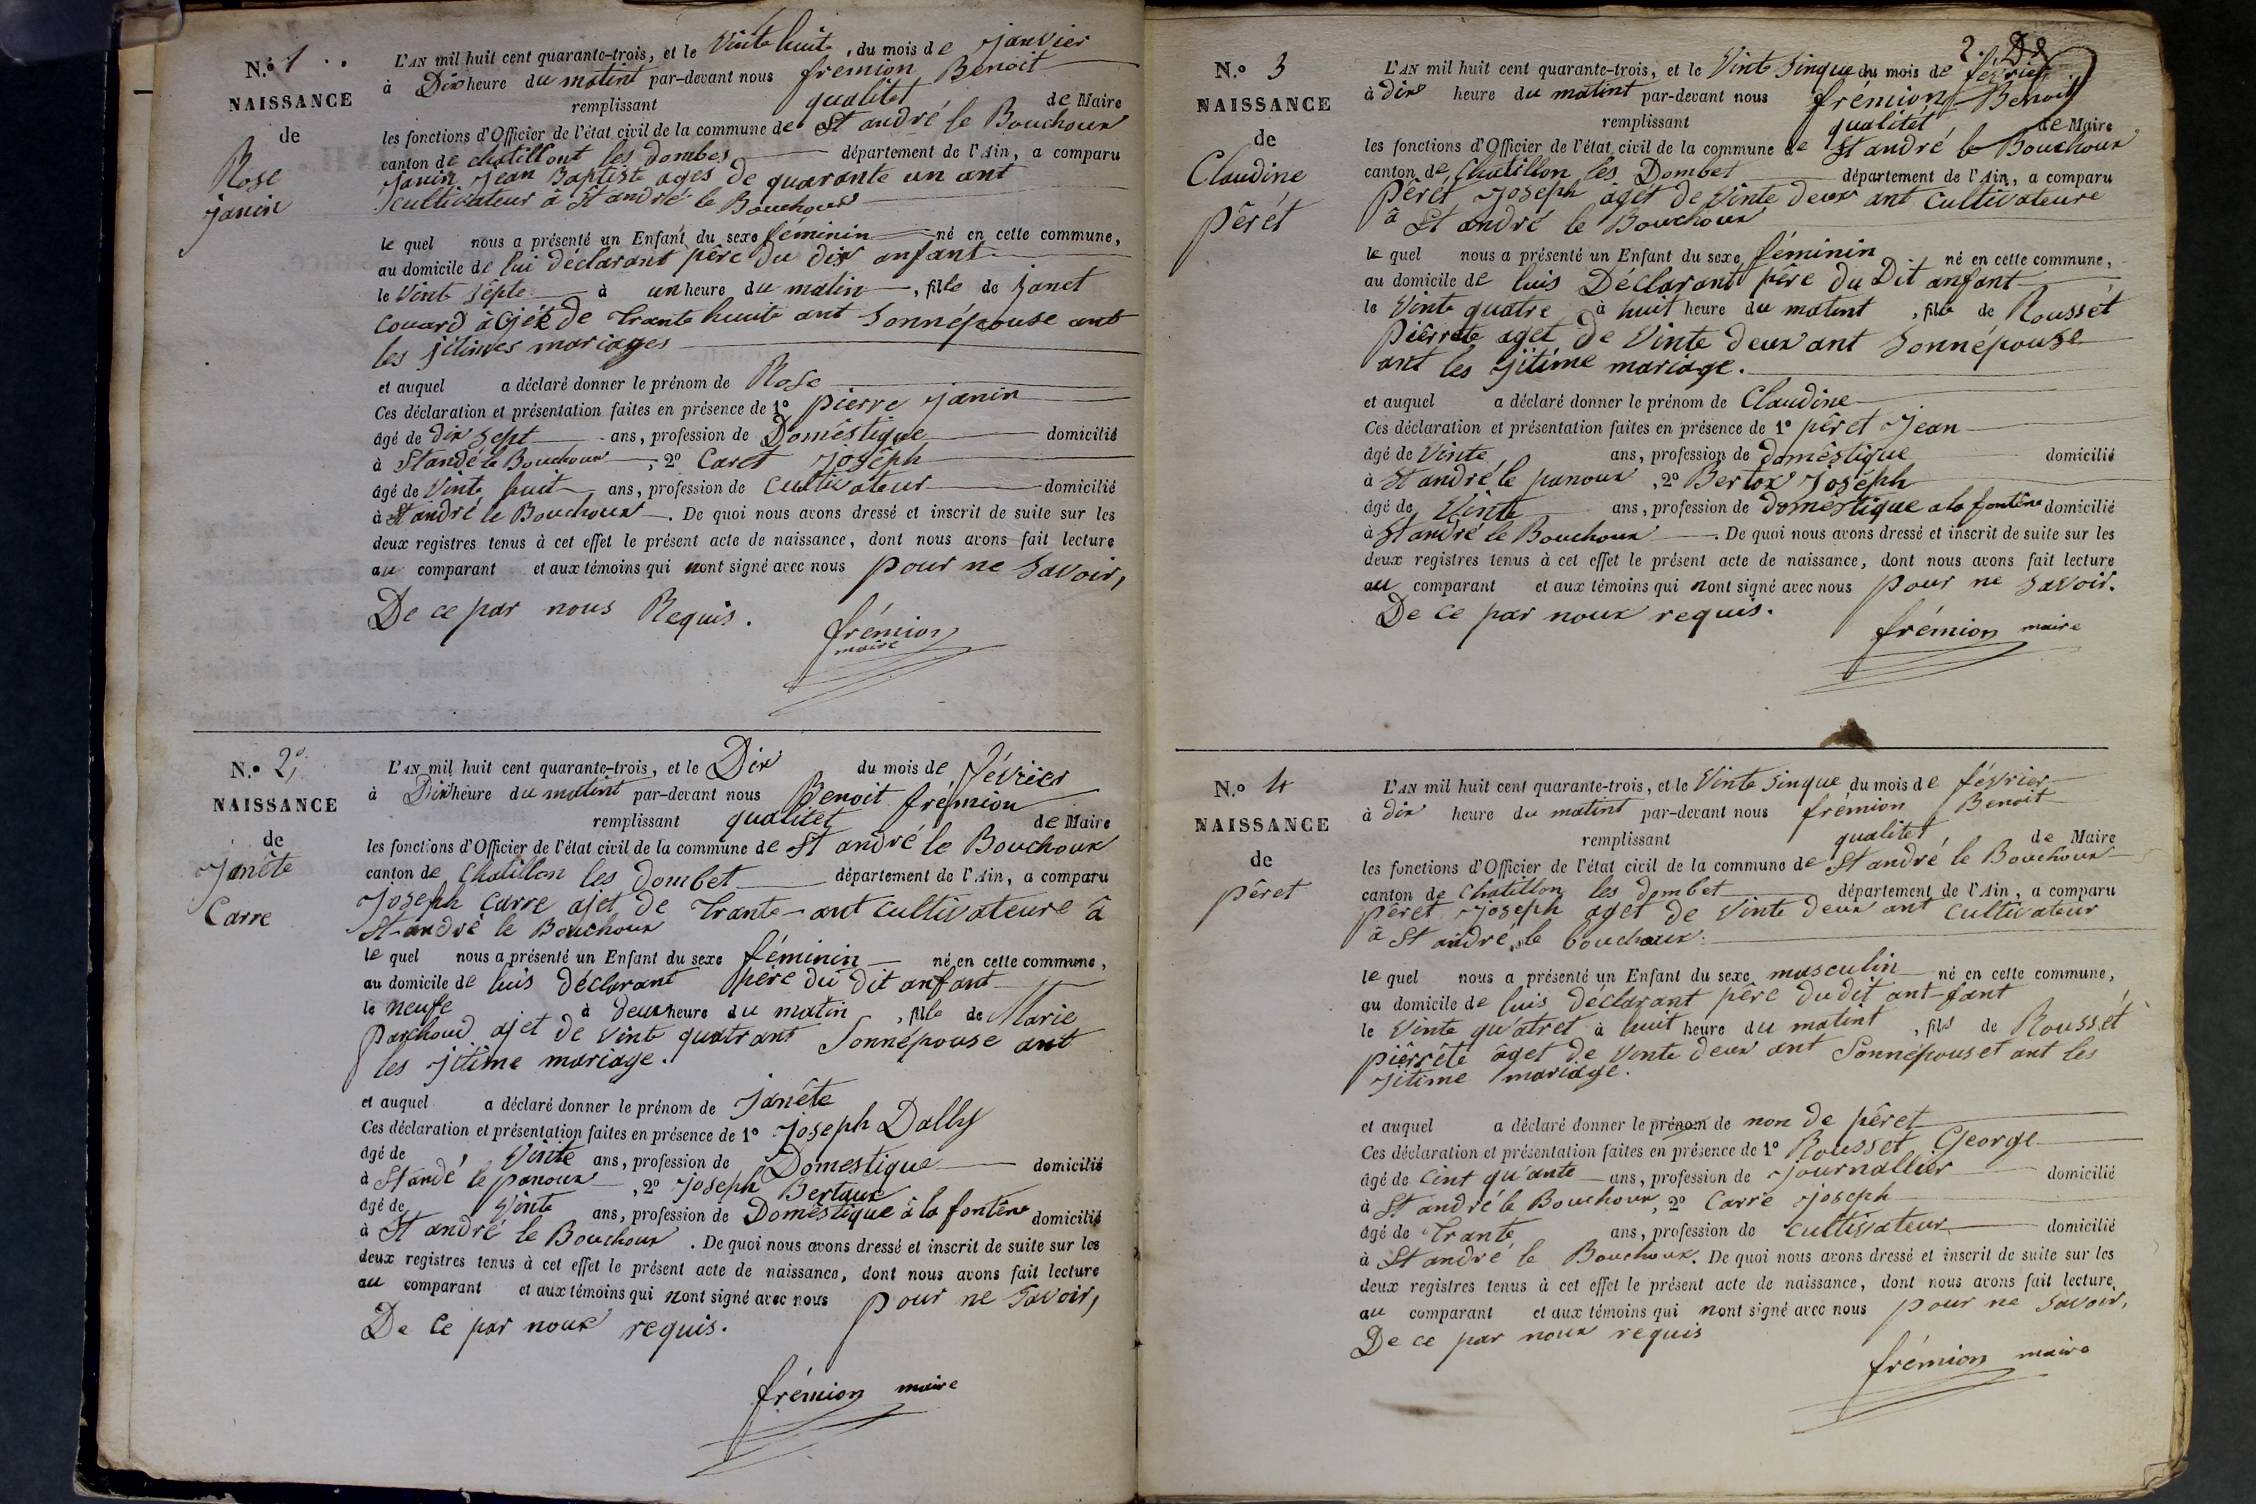 N.o 1
NAISSANCE
de
Rose
janin
L'AN mil huit cent quarante-trois, et le Vinte huite, du mois de janvier
à Dix heure du matint par-devant nous fremion Benoit
remplissant qualitet de Maire
les fonctions d'Officier de l'état civil de la commune de St andré le Bouchoux
canton de chatillont les dombes département de l'Ain, a comparu
janin Jean Baptiste ages de quarante un ant
cultivateur a St andrié le Bouchoux
le quel nous a présenté un Enfant du sexe féminin né en cette commune,
au domicile de lui déclarant père du dix anfant
le Vint sèpte à un heure du matin, fille de janet
Couard àgéé de trante huite ant sonnépouse ant
les jitimes mariages
et auquel a déclaré donner le prénom de Rose
Ces déclaration et présentation faites en présence de 1o pierre janin
âgé de dix sept ans, profession de Domêstique domicilié
à St andé le Bouchoux, 2o Caret joséph
âgé de Vinte huit ans, profession de cultivateur domicilié
à St andré le Bouchoux. De quoi nous avons dressé et inscrit de suite sur les
deux registres tenus à cet effet le présent acte de naissance, dont nous avons fait lecture
au comparant et aux témoins qui nont signé avec nous pour ne savoir,
De ce par nous Requis.
frémion
maire
N.o 2
NAISSANCE
de
janête
Carre
L'AN mil huit cent quarante-trois, et le Dix du mois de février
à Dix heure du matint par-devant nous Benoit frémion
remplissant qualitet de Maire
les fonctions d'Officier de l'état civil de la commune de St andré le Bouchoux
canton de Chatillon les dombet département de l'Ain, a comparu
joseph Carre ajet de trante ant cultivateure à
St andré le Bouchoux
le quel nous a présenté un Enfant du sexe féminin né en cette commune,
au domicile de luis déclarant père du dit anfant
le neufe à deux heure du matin, fille de Marie
panchoud ajet de vinte quatrant sonnépouse ant
les jitime mariage.
et auquel a déclaré donner le prénom de janête
Ces déclaration et présentation faites en présence de 1o joseph Dally
âgé de Vinte ans, profession de Domestique domicilié
à St andé le panoux, 2o joseph Bertaux
âgé de Vinte ans, profession de Domêstique à la fontêne domicilié
à St andré le Bouchoux. De quoi nous avons dressé et inscrit de suite sur les
deux registres tenus à cet effet le présent acte de naissance, dont nous avons fait lecture
au comparant et aux témoins qui nont signé avec nous pour ne savoir,
De ce par noux requis.
frémion maire
2.
N.o 3
NAISSANCE
de
Claudine
pêrét
L'AN mil huit cent quarante-trois, et le Vinte sinque du mois de février
à dix heure du matint par-devant nous frémion Benoit
remplissant qualitet de Maire
les fonctions d'Officier de l'état civil de la commune de St andré le Bouchoux
canton de Chatillon les Dombet département de l'Ain, a comparu
pêret joseph âget de Vinte deux ant cultivateure
à St andré le Bouchoux
le quel nous a présenté un Enfant du sexe féminin né en cette commune,
au domicile de luis Déclarant pêre du Dit anfant
le Vinte quatre à huit heure du matint, fille de Roussét
Piêrrete aget de Vinte deux ant sonnépouse
ant les jitime mariage.
et auquel a déclaré donner le prénom de Claudine
Ces déclaration et présentation faites en présence de 1o pêret jean
âgé de Vinte ans, profession de domêstique domicilié
à St andré le panoux, 2o Bertox joséph
âgé de Vinte ans, profession de domêstique a la fontêne domicilié
à St andré le Bouchoux. De quoi nous avons dressé et inscrit de suite sur les
deux registres tenus à cet effet le présent acte de naissance, dont nous avons fait lecture
au comparant et aux témoins qui nont signé avec nous pour ne savoir.
De ce par noux requis.
frémion maire
N.o 4
NAISSANCE
de
pêret
L'AN mil huit cent quarante-trois, et le Vinte sinque du mois de février
à dix heure du matint par-devant nous frémion Benoit
remplissant qualitet de Maire
les fonctions d'Officier de l'état civil de la commune de St andré le Bouchoux
canton de Chatillon les dombet département de l'Ain, a comparu
pêret joseph aget de Vinte deux ant cultivateur
à St andré le bouchoux.
le quel nous a présenté un Enfant du sexe masculin né en cette commune,
au domicile de luis déclarant pêre du dit ant-fant
le Vinte qu'atret à huit heure du matint, fils de Roussét
piêrrête âget de Vinte deux ant sonnépouset ant les
jitime mariage.
et auquel a déclaré donner le prénom de non de pêret
Ces déclaration et présentation faites en présence de 1o Rousset George
âgé de Cint qu'ante ans, profession de journallier domicilié
à St andré le Bouchoux, 2o Carre joseph
âgé de Trante ans, profession de cultivateur domicilié
à St andré le Bouchoux. De quoi nous avons dressé et inscrit de suite sur les
deux registres tenus à cet effet le présent acte de naissance, dont nous avons fait lecture
au comparant et aux témoins qui nont signé avec nous pour ne savoir,
De ce par noux requis
frémion maire